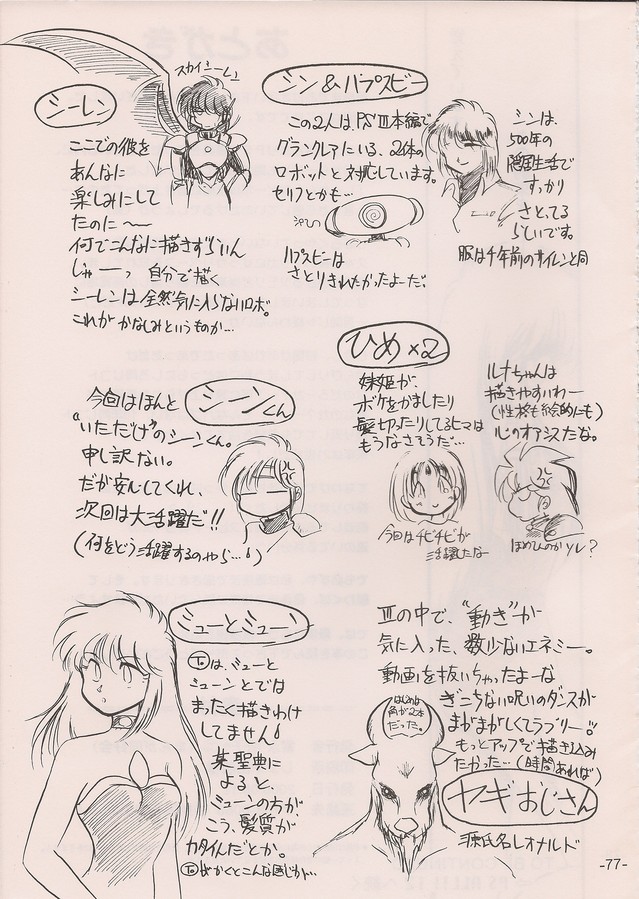 シーレン
スカイシーレン
ここでの彼を
あんなに
楽しみにして
たのに〜〜
何でこんなに描きずらいん
じゃーーっ 自分で描く
シーレンは全然気に入らないロボ。
これがかなしみというものか…
シン&ハプスビー
この2人は、PSⅢ本編で
グランクレアにいる、2体の
ロボットと対応しています。
セリフとかも…
ハプスビーは
さとりきれたかったよーだ。
シンは、
500年の
隠居生活で
すっかり
さとってる
らしいです。
服は千年前のサイレンと同
ひめ×2
妹姫が、
ボケをかましたり
髪切ったりしてるヒマは
もうなさそうだ…
今回はチビチビが
活躍したなー
ルナちゃんは
描きやすいわー
(性格も絵的にも)
心のオアシスだな。
ほめてんのか ソレ?
シーンくん
今回はほんと
"いただけ"のシーンくん。
申し訳ない。
だが安心してくれ、
次回は大活躍だ!!
(何をどう活躍するのやら…)
ミューとミューン
は、ミューと
ミューンとでは
まったく描きわけ
してません!
某聖典に
よると、
ミューンの方が
こう、髪質が
カタイんだとか。
がかくとこんな感じか…
Ⅲの中で、"動き"が
気に入った、数少ないエネミー。
動画を抜いちゃったよーな
ぎこちない呪いのダンスが
まがまがしくてラブリー!!
もっとアップで描き込み
たかった…(時間あれば)
はじめは
角が2本
だった。
ヤギおじさん
源氏名レオナルド
-77-